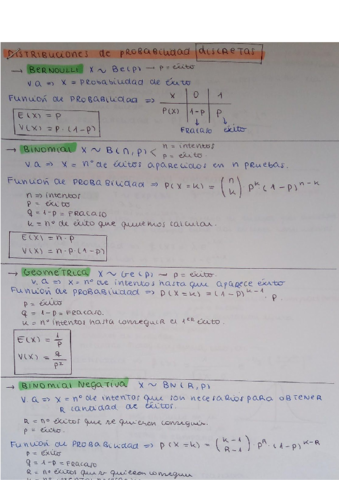 DISTRIBUCIONES DE PROBABILIDAD DISCRETAS
→ BERNOULLI X ~ Be(p) → p = éxito
V.a ⇒ X = Probabilidad de éxito
Función de probabilidad ⇒ X 0 1
P(X) 1-p p
FRACASO éxito
E(X) = p
V(X) = p·(1-p)
→ BINOMIAL X ~ B(n,p) < n = intentos
p = éxito
V.a ⇒ X = nº de éxitos aparecidos en n pruebas.
Función de probabilidad ⇒ P(X=k) = (n k) p^k (1-p)^n-k
n = intentos
p = éxito
q = 1-p = FRACASO
k = nº de éxito que queremos calcular.
E(X) = n·p
V(X) = n·p(1-p)
→ GEOMÉTRICA X ~ Ge(p) → p = éxito
V.a ⇒ X = nº de intentos hasta que aparece éxito
Función de probabilidad ⇒ P(X=k) = (1-p)^k-1 · p
p = éxito
q = 1-p = FRACASO.
k = nº intentos hasta conseguir el 1er éxito.
E(X) = 1/p
V(X) = q/p²
→ BINOMIAL NEGATIVA X ~ BN(R,p)
V.a ⇒ X = nº de intentos que son necesarios para obtener
R cantidad de éxitos.
R = nº éxitos que se quieren conseguir.
p = éxito.
Función de probabilidad ⇒ P(X=k) = (k-1 R-1) p^R · (1-p)^k-R
p = éxito
q = 1-p = FRACASO
R = nº éxitos que se quieren conseguir